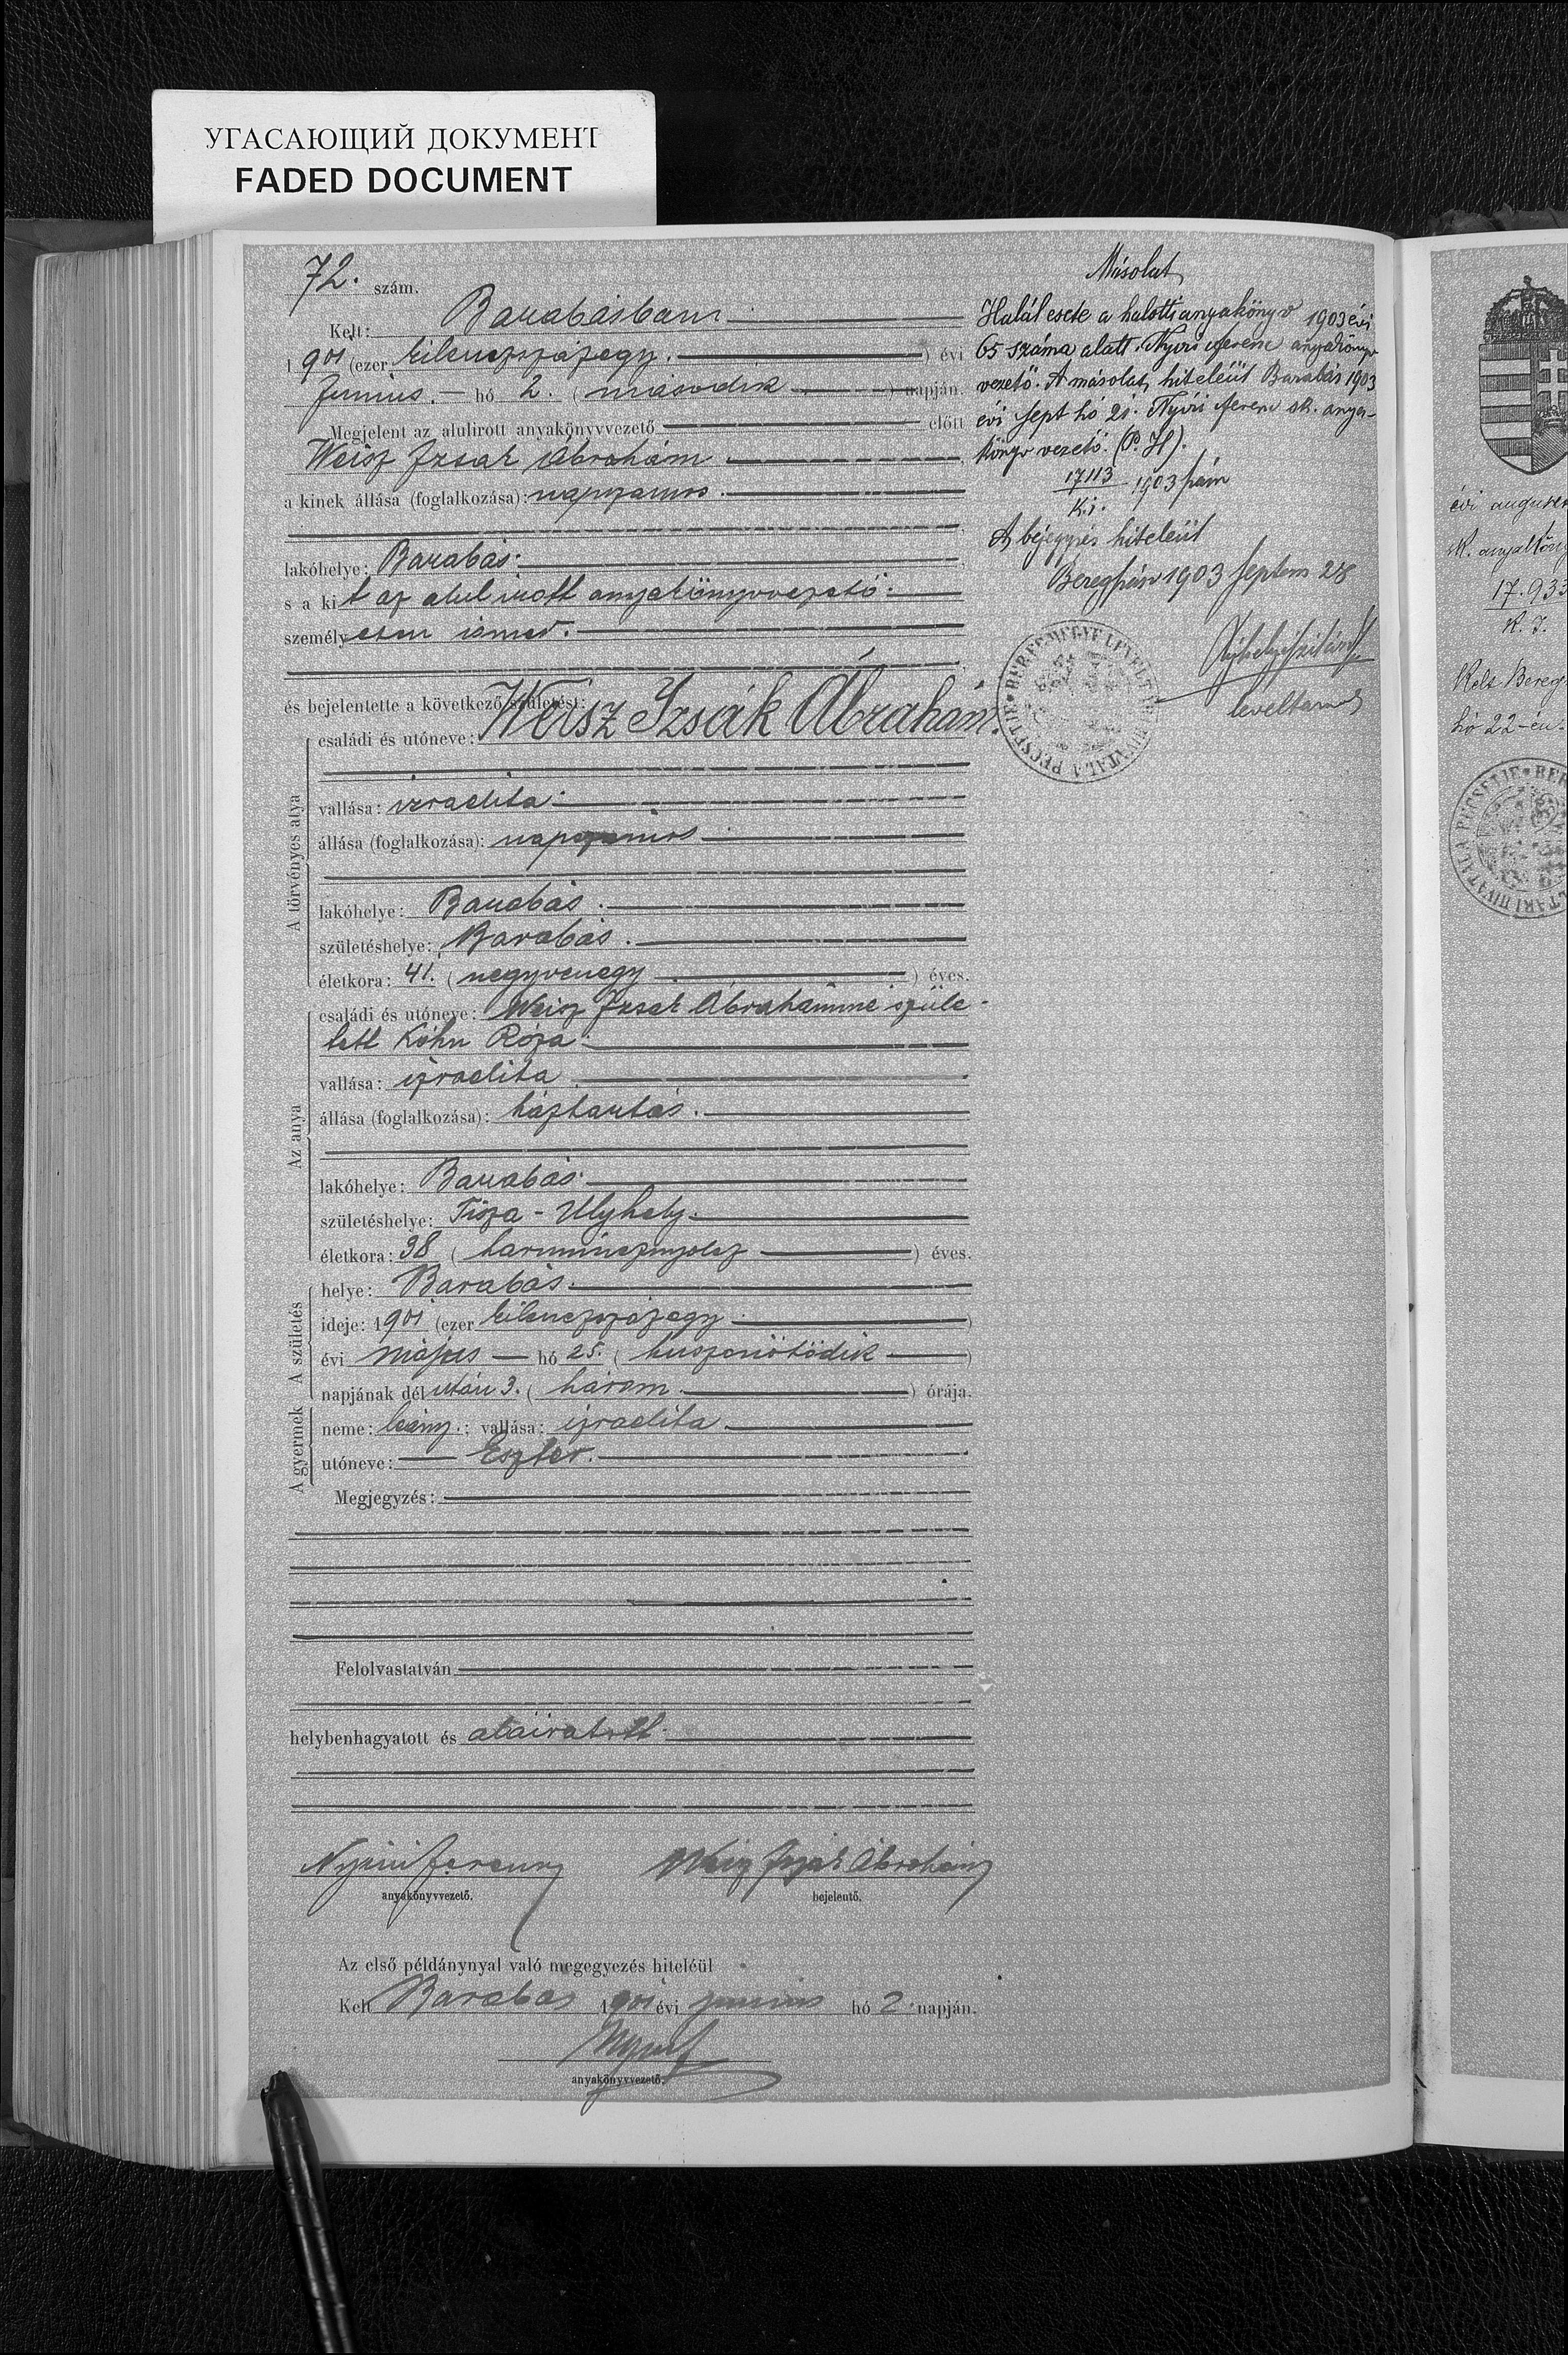 УГАСАЮЩИЙ ДОКУМЕНТ
FADED DOCUMENT
72. szám.
Kelt: Barabásban
1901 (ezer kilenczszázegy.) évi
Junius. hó 2. (második) napján.
Megjelent az alulirott anyakönyvvezető előtt
Weisz Izsak Ábrahám
a kinek állása (foglalkozása): napszamos.
lakóhelye: Barabás.
s a kit az alulirott anyakönyvvezető
személyesen ismer.
és bejelentette a következő születést:
A törvényes atya
családi és utóneve: Weisz Izsák Ábrahám.
vallása: izraelita.
állása (foglalkozása): napszamos
lakóhelye: Barabás.
születéshelye: Barabás.
életkora: 41. (negyvenegy) éves.
Az anya
családi és utóneve: Weisz Izsak Ábrahámné szüle-
tett Kóhn Róza
vallása: izraelita
állása (foglalkozása): háztartás.
lakóhelye: Barabás.
születéshelye: Tisza-Ujhely.
életkora: 38 (harmincznyolcz) éves.
A születés
helye: Barabás.
ideje: 1901 (ezer kilenczszázegy)
évi május hó 25. (huszonötödik)
napjának délután 3. (három.) órája.
A gyermek
neme: leány.; vallása: izraelita
utóneve: Eszter.
Megjegyzés:
Felolvastatván
helybenhagyatott és aláiratott.
Nyiri Ferencz Weisz Izsák Ábrahám
anyakönyvvezető. bejelentő.
Az első példánynyal való megegyezés hiteléül
Kelt Barabas 1901 évi junius hó 2. napján.
anyakönyvvezető.
Másolat
Halál esete a halotti anyakönyv 1903 évi
65 száma alatt. Nyiri Ferenc anyakönyv
vezető. A másolat hiteléül Barabás 1903
évi sept hó 21. Nyiri Ferenc sk. anya-
könyv vezető. (P.H).
17113
K.i. 1903 szám
A bejegyzés hiteléül
Beregszász 1903 septem 28
levéltárnok
BEREGMEGYE LEVÉLTÁRI HIVATALA PECSÉTJE
évi august
sk. anyaköny
17.933
K. I.
Kelt Bereg
hó 22-én.